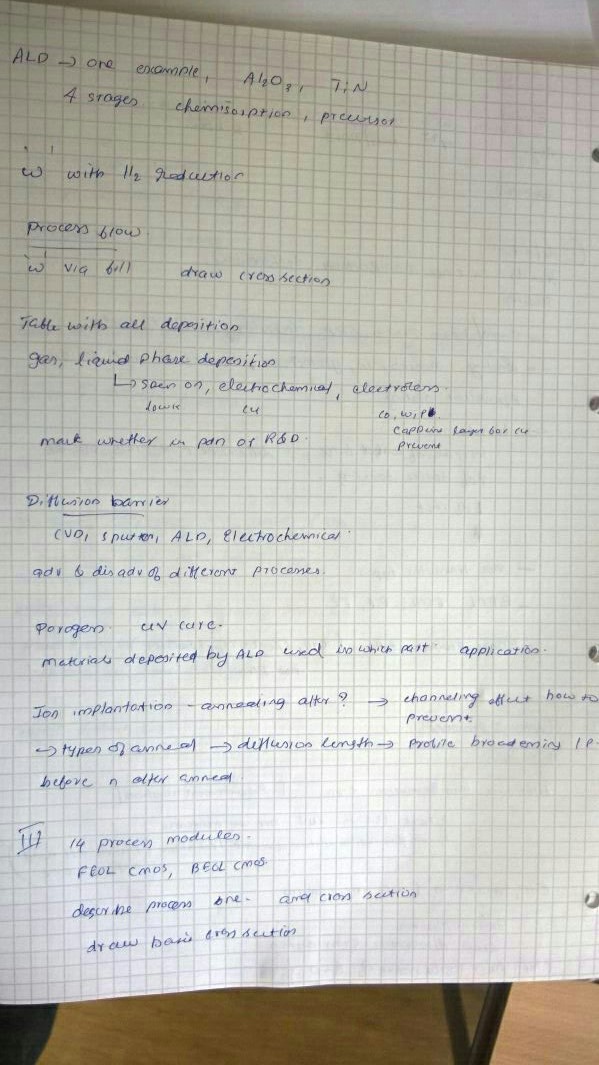 ALD → one example, Al2O3, TiN
4 stages chemisorption, precursor
'W' with H2 reduction
process flow
'W' via fill draw cross section
Table with all deposition
gas, liquid phase deposition
↳ spin on, electrochemical, electroless.
lowk Cu Co, W, P
capping layer for Cu
mark whether in pdn or R&D. prevent
Diffusion barrier
CVD, sputter, ALD, Electrochemical.
adv & disadv of different processes.
Porogen UV cure.
materials deposited by ALD used in which part. application.
Ion implantation - annealing after? → channeling effect how to
prevent
→ types of anneal → diffusion length → Profile broadening I.P.
before n after anneal.
III 14 process modules.
FEOL CMOS, BEOL CMOS.
describe process one. and cross section
draw basic cross section